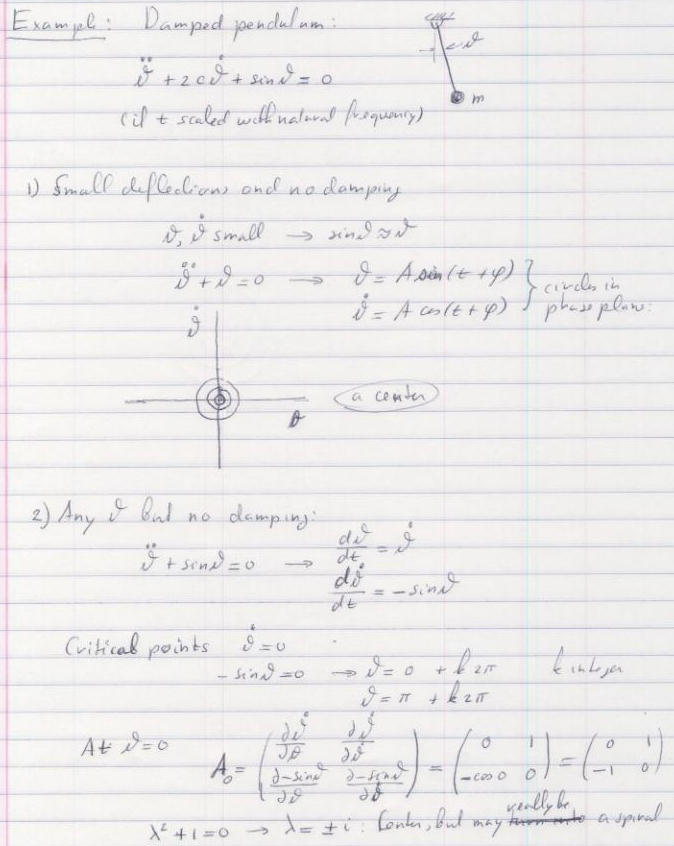 Example: Damped pendulum:
ϑ
ϑ̈ + 2cϑ̇ + sinϑ = 0
m
(if t scaled with natural frequency)
1) Small deflections and no damping
ϑ, ϑ̇ small → sinϑ ≈ ϑ
ϑ̈ + ϑ = 0 → ϑ = A sin(t + φ)
ϑ̇ = A cos(t + φ)
circles in
phase plane:
ϑ̇
a center
θ
2) Any ϑ but no damping:
ϑ̈ + sinϑ = 0 → dϑ/dt = ϑ̇
dϑ̇/dt = -sinϑ
Critical points ϑ̇ = 0
-sinϑ = 0 → ϑ = 0 + k2π k integer
ϑ = π + k2π
At ϑ = 0 A₀ = (∂ϑ̇/∂θ ∂ϑ̇/∂ϑ̇ ; ∂-sinϑ/∂ϑ ∂-sinϑ/∂ϑ̇) = (0 1 ; -cos0 0) = (0 1 ; -1 0)
λ² + 1 = 0 → λ = ± i : Center, but may really be a spiral